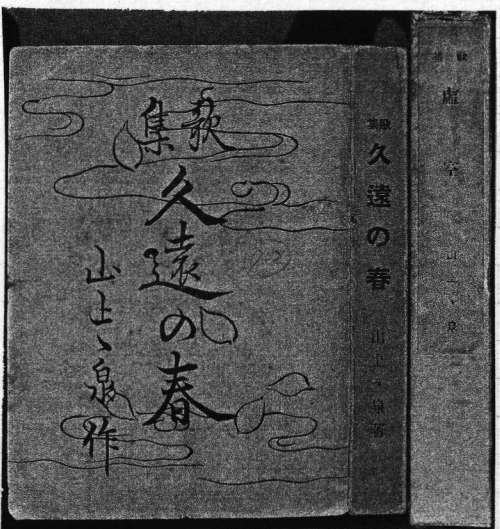 歌集
久遠の春
山上ゝ泉作
歌集
久遠の春
山上ゝ泉著
歌集
虚空
山上ゝ泉